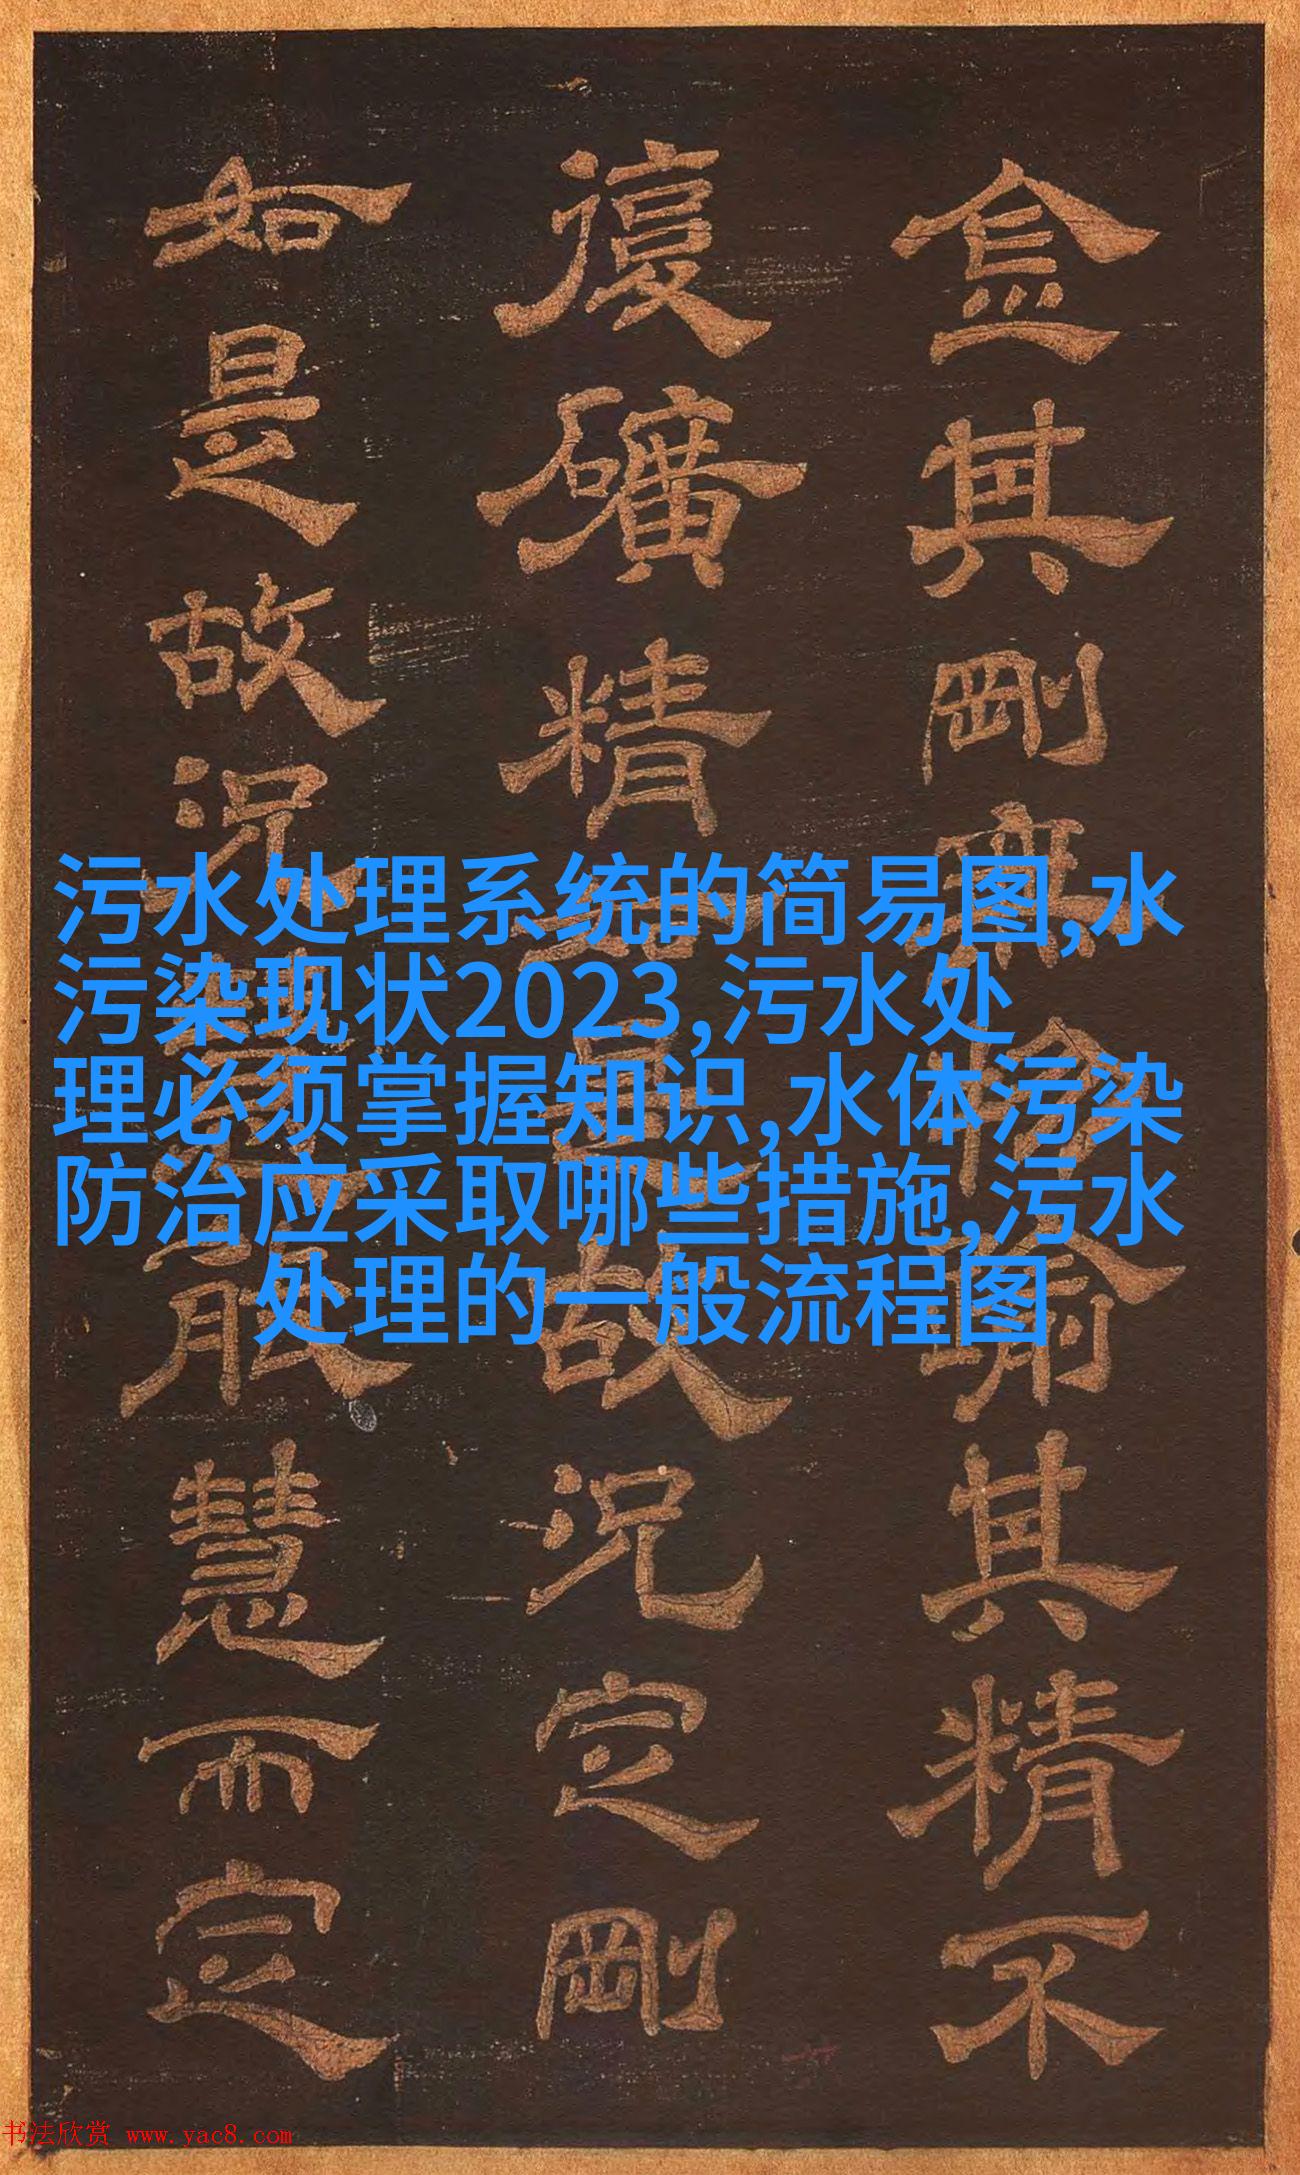 污水处理系统的简易图,水
污染现状2023,污水处
理必须掌握知识,水体污染
防治应采取哪些措施,污水
处理的一般流程图
其剛無其精不
復礦精故況定剛
如是故況慧而定
书法欣赏 www.yac8.com